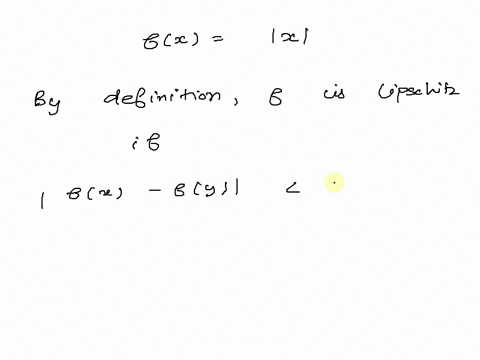 f(x) = |x|
By definition, f is Lipschitz
if
| f(x) - f(y) | <